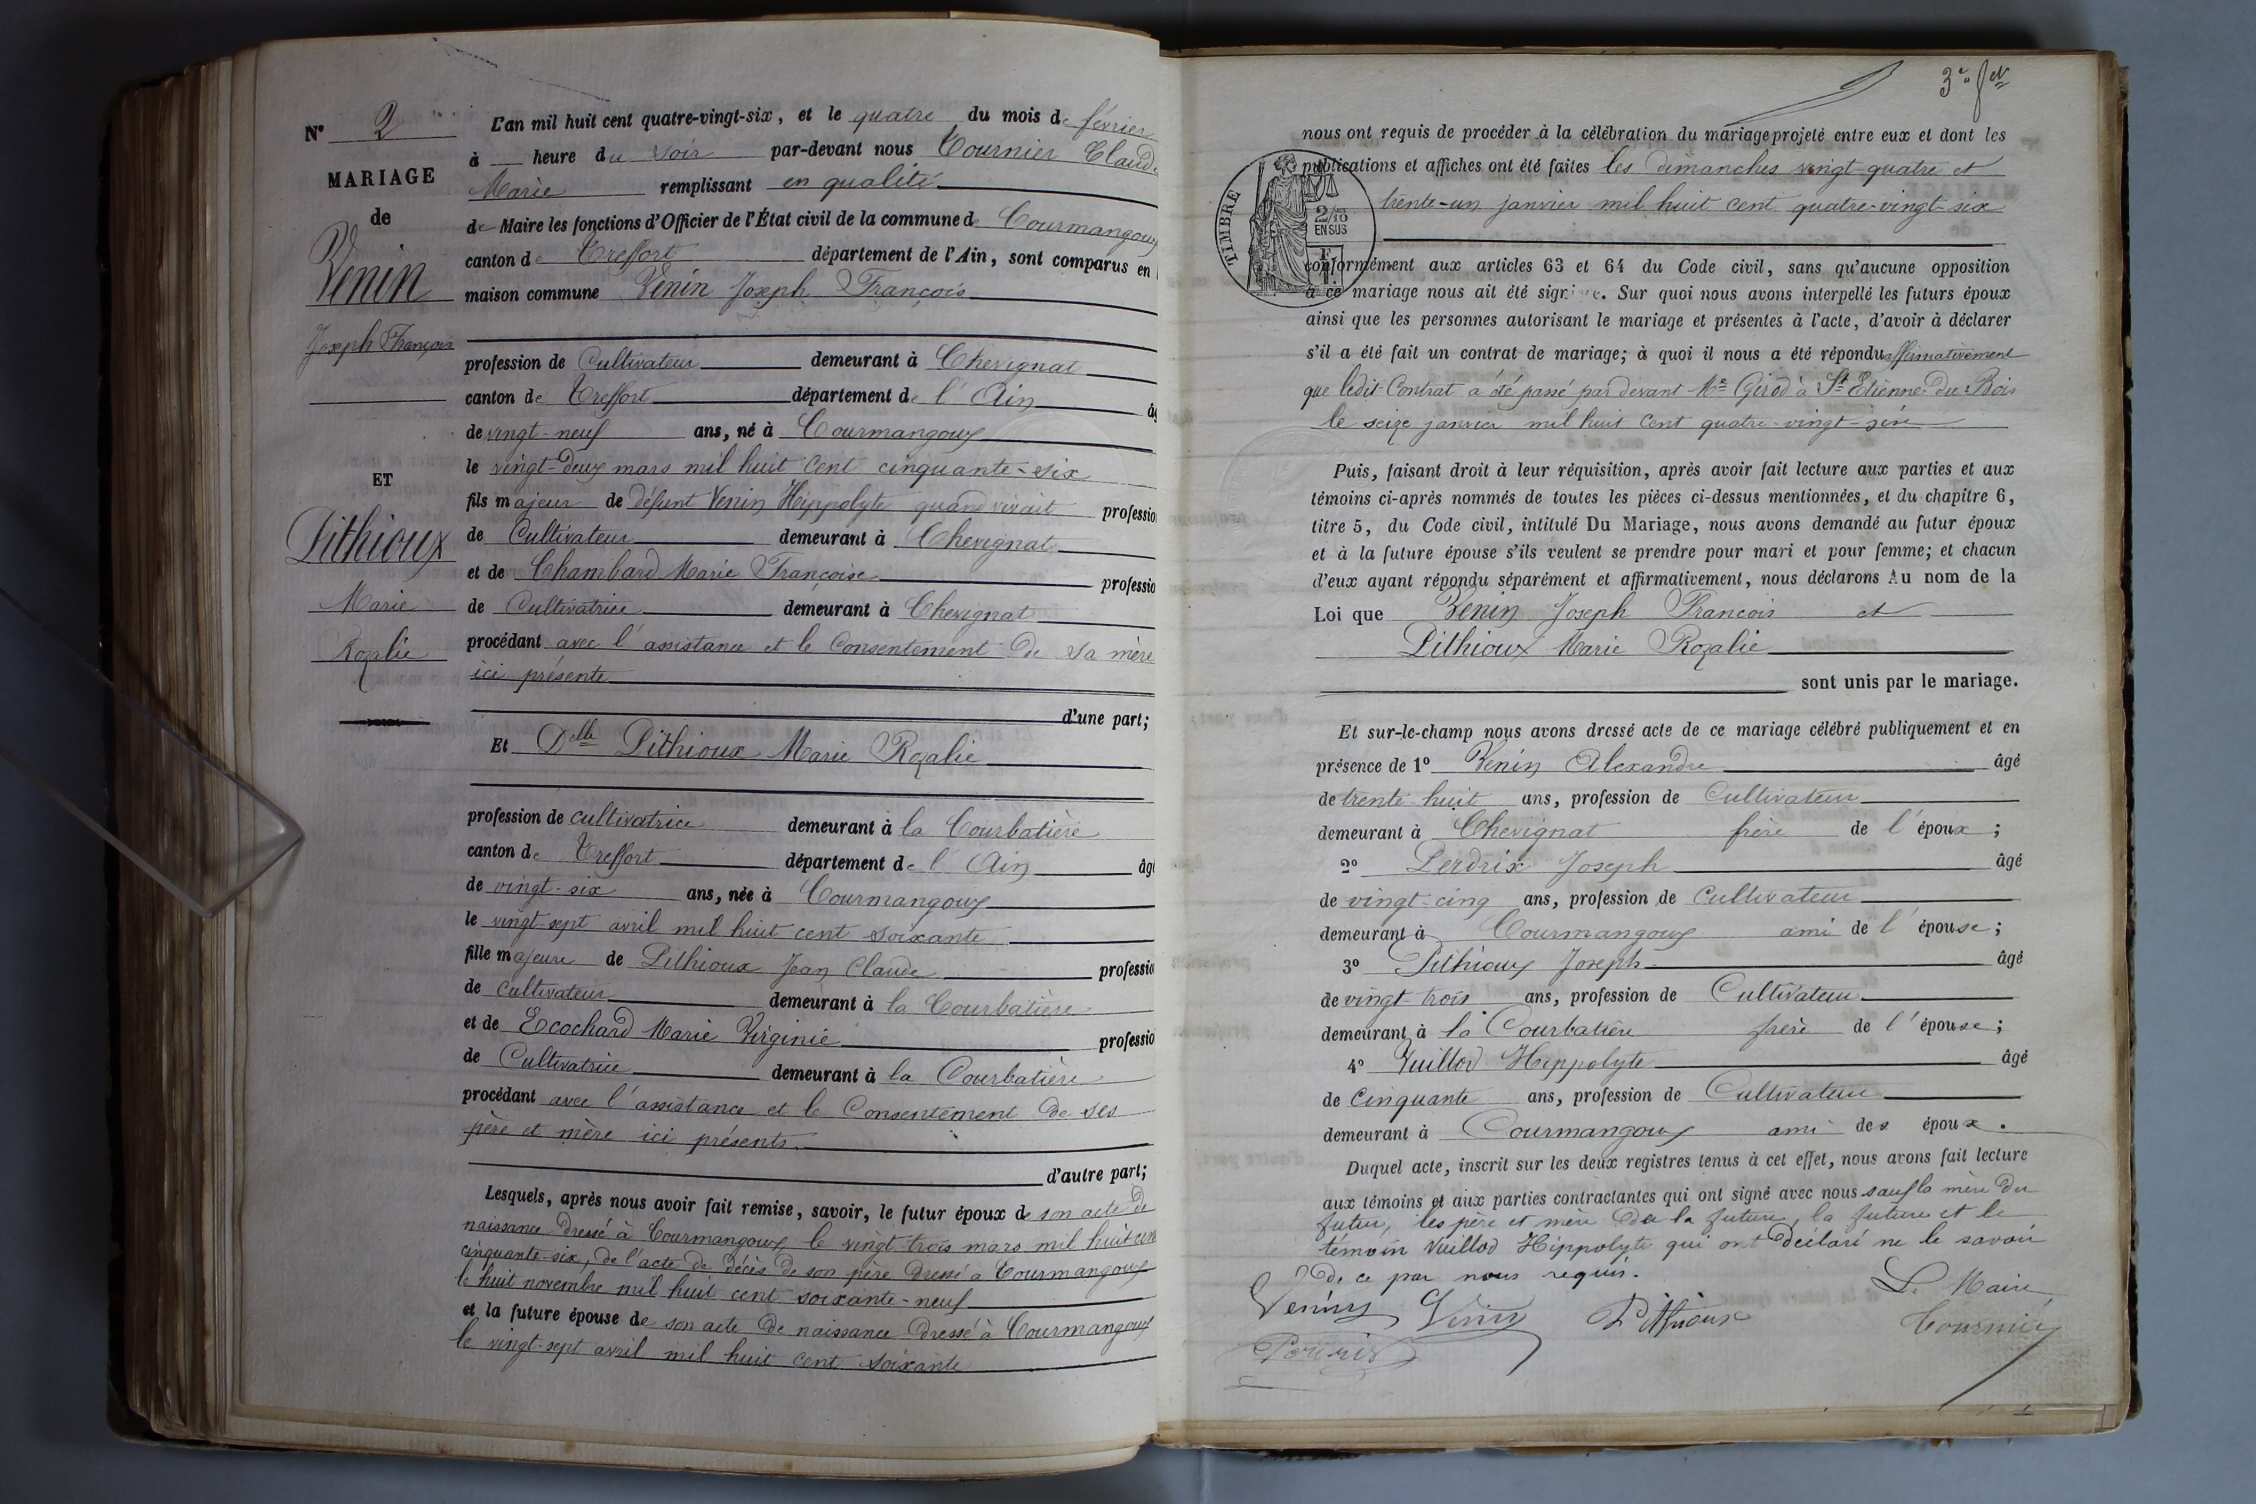 N° 2
MARIAGE
de
Venin
Joseph François
ET
Pithioux
Marie
Rozalie
L'an mil huit cent quatre-vingt-six, et le quatre du mois de février
à heure du soir par-devant nous Tournier Claude
Marie remplissant en qualité
de Maire les fonctions d'Officier de l'État civil de la commune d Courmangoux
canton de Treffort département de l'Ain, sont comparus en
maison commune Venin Joseph François
profession de Cultivateur demeurant à Chevignat
canton de Treffort département de l'Ain
de vingt-neuf ans, né à Courmangoux
le vingt-deux mars mil huit cent cinquante-six
fils majeur de défunt Venin Hippolyte quand vivait professio
de Cultivateur demeurant à Chevignat
et de Chambard Marie Françoise professio
de Cultivatrice demeurant à Chevignat
procédant avec l'assistance et le Consentement de sa mère
ici présente
d'une part;
Et Delle Pithioux Marie Rozalie
profession de cultivatrice demeurant à la Courbatière
canton de Treffort département de l'Ain âgé
de vingt-six ans, née à Courmangoux
le vingt-sept avril mil huit cent soixante
fille majeure de Pithioux Jean Claude professio
de cultivateur demeurant à la Courbatière
et de Ecochard Marie Virginie professio
de Cultivatrice demeurant à la Courbatière
procédant avec l'assistance et le Consentement de ses
père et mère ici présents
d'autre part;
Lesquels, après nous avoir fait remise, savoir, le futur époux de son acte de
naissance dressé à Courmangoux le vingt-trois mars mil huit cent
cinquante-six, de l'acte de décès de son père dressé à Courmangoux
le huit novembre mil huit cent soixante-neuf
et la future épouse de son acte de naissance dressé à Courmangoux
le vingt-sept avril mil huit cent soixante
3e
nous ont requis de procéder à la célébration du mariage projeté entre eux et dont les
publications et affiches ont été faites les dimanches vingt-quatre et
trente-un janvier mil huit cent quatre-vingt-six
TIMBRE
2/10
EN SUS
conformément aux articles 63 et 64 du Code civil, sans qu'aucune opposition
à ce mariage nous ait été signifiée. Sur quoi nous avons interpellé les futurs époux
ainsi que les personnes autorisant le mariage et présentes à l'acte, d'avoir à déclarer
s'il a été fait un contrat de mariage; à quoi il nous a été répondu affirmativement
que ledit Contrat a été passé par devant Me Girod à St Etienne-du-Bois
le seize janvier mil huit cent quatre-vingt-six
Puis, faisant droit à leur réquisition, après avoir fait lecture aux parties et aux
témoins ci-après nommés de toutes les pièces ci-dessus mentionnées, et du chapitre 6,
titre 5, du Code civil, intitulé Du Mariage, nous avons demandé au futur époux
et à la future épouse s'ils veulent se prendre pour mari et pour femme; et chacun
d'eux ayant répondu séparément et affirmativement, nous déclarons Au nom de la
Loi que Venin Joseph François et
Pithioux Marie Rozalie
sont unis par le mariage.
Et sur-le-champ nous avons dressé acte de ce mariage célébré publiquement et en
présence de 1° Venin Alexandre âgé
de trente-huit ans, profession de Cultivateur
demeurant à Chevignat frère de l'époux;
2° Perdrix Joseph âgé
de vingt-cinq ans, profession de Cultivateur
demeurant à Courmangoux ami de l'épouse;
3° Pithioux Joseph âgé
de vingt-trois ans, profession de Cultivateur
demeurant à la Courbatière frère de l'épouse;
4° Vuillod Hippolyte âgé
de Cinquante ans, profession de Cultivateur
demeurant à Courmangoux ami des époux.
Duquel acte, inscrit sur les deux registres tenus à cet effet, nous avons fait lecture
aux témoins et aux parties contractantes qui ont signé avec nous sauf la mère du
futur, les père et mère de la future, la future et le
témoin Vuillod Hippolyte qui ont déclaré ne le savoir
de ce par nous requis.
Le Maire,
Venin Venin Pithioux Tournier
Perdrix